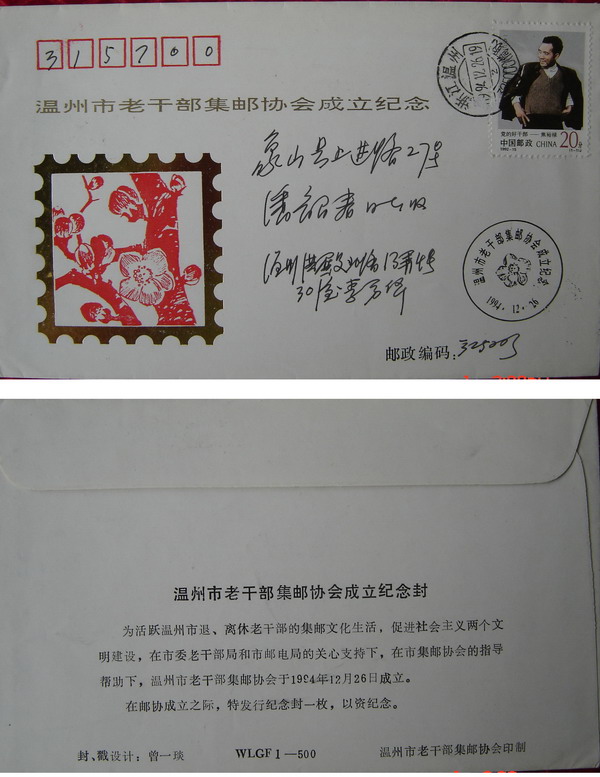 315700
浙江温州
党的好干部——焦裕禄
中国邮政 CHINA 20分
温州市老干部集邮协会成立纪念
象山县上进路27号
收
温州市老干部集邮协会成立纪念
1994.12.26
邮政编码:325003
温州市老干部集邮协会成立纪念封
为活跃温州市退、离休老干部的集邮文化生活,促进社会主义两个文
明建设,在市委老干部局和市邮电局的关心支持下,在市集邮协会的指导
帮助下,温州市老干部集邮协会于1994年12月26日成立。
在邮协成立之际,特发行纪念封一枚,以资纪念。
封、戳设计:曾一琰 WLGF1—500 温州市老干部集邮协会印制